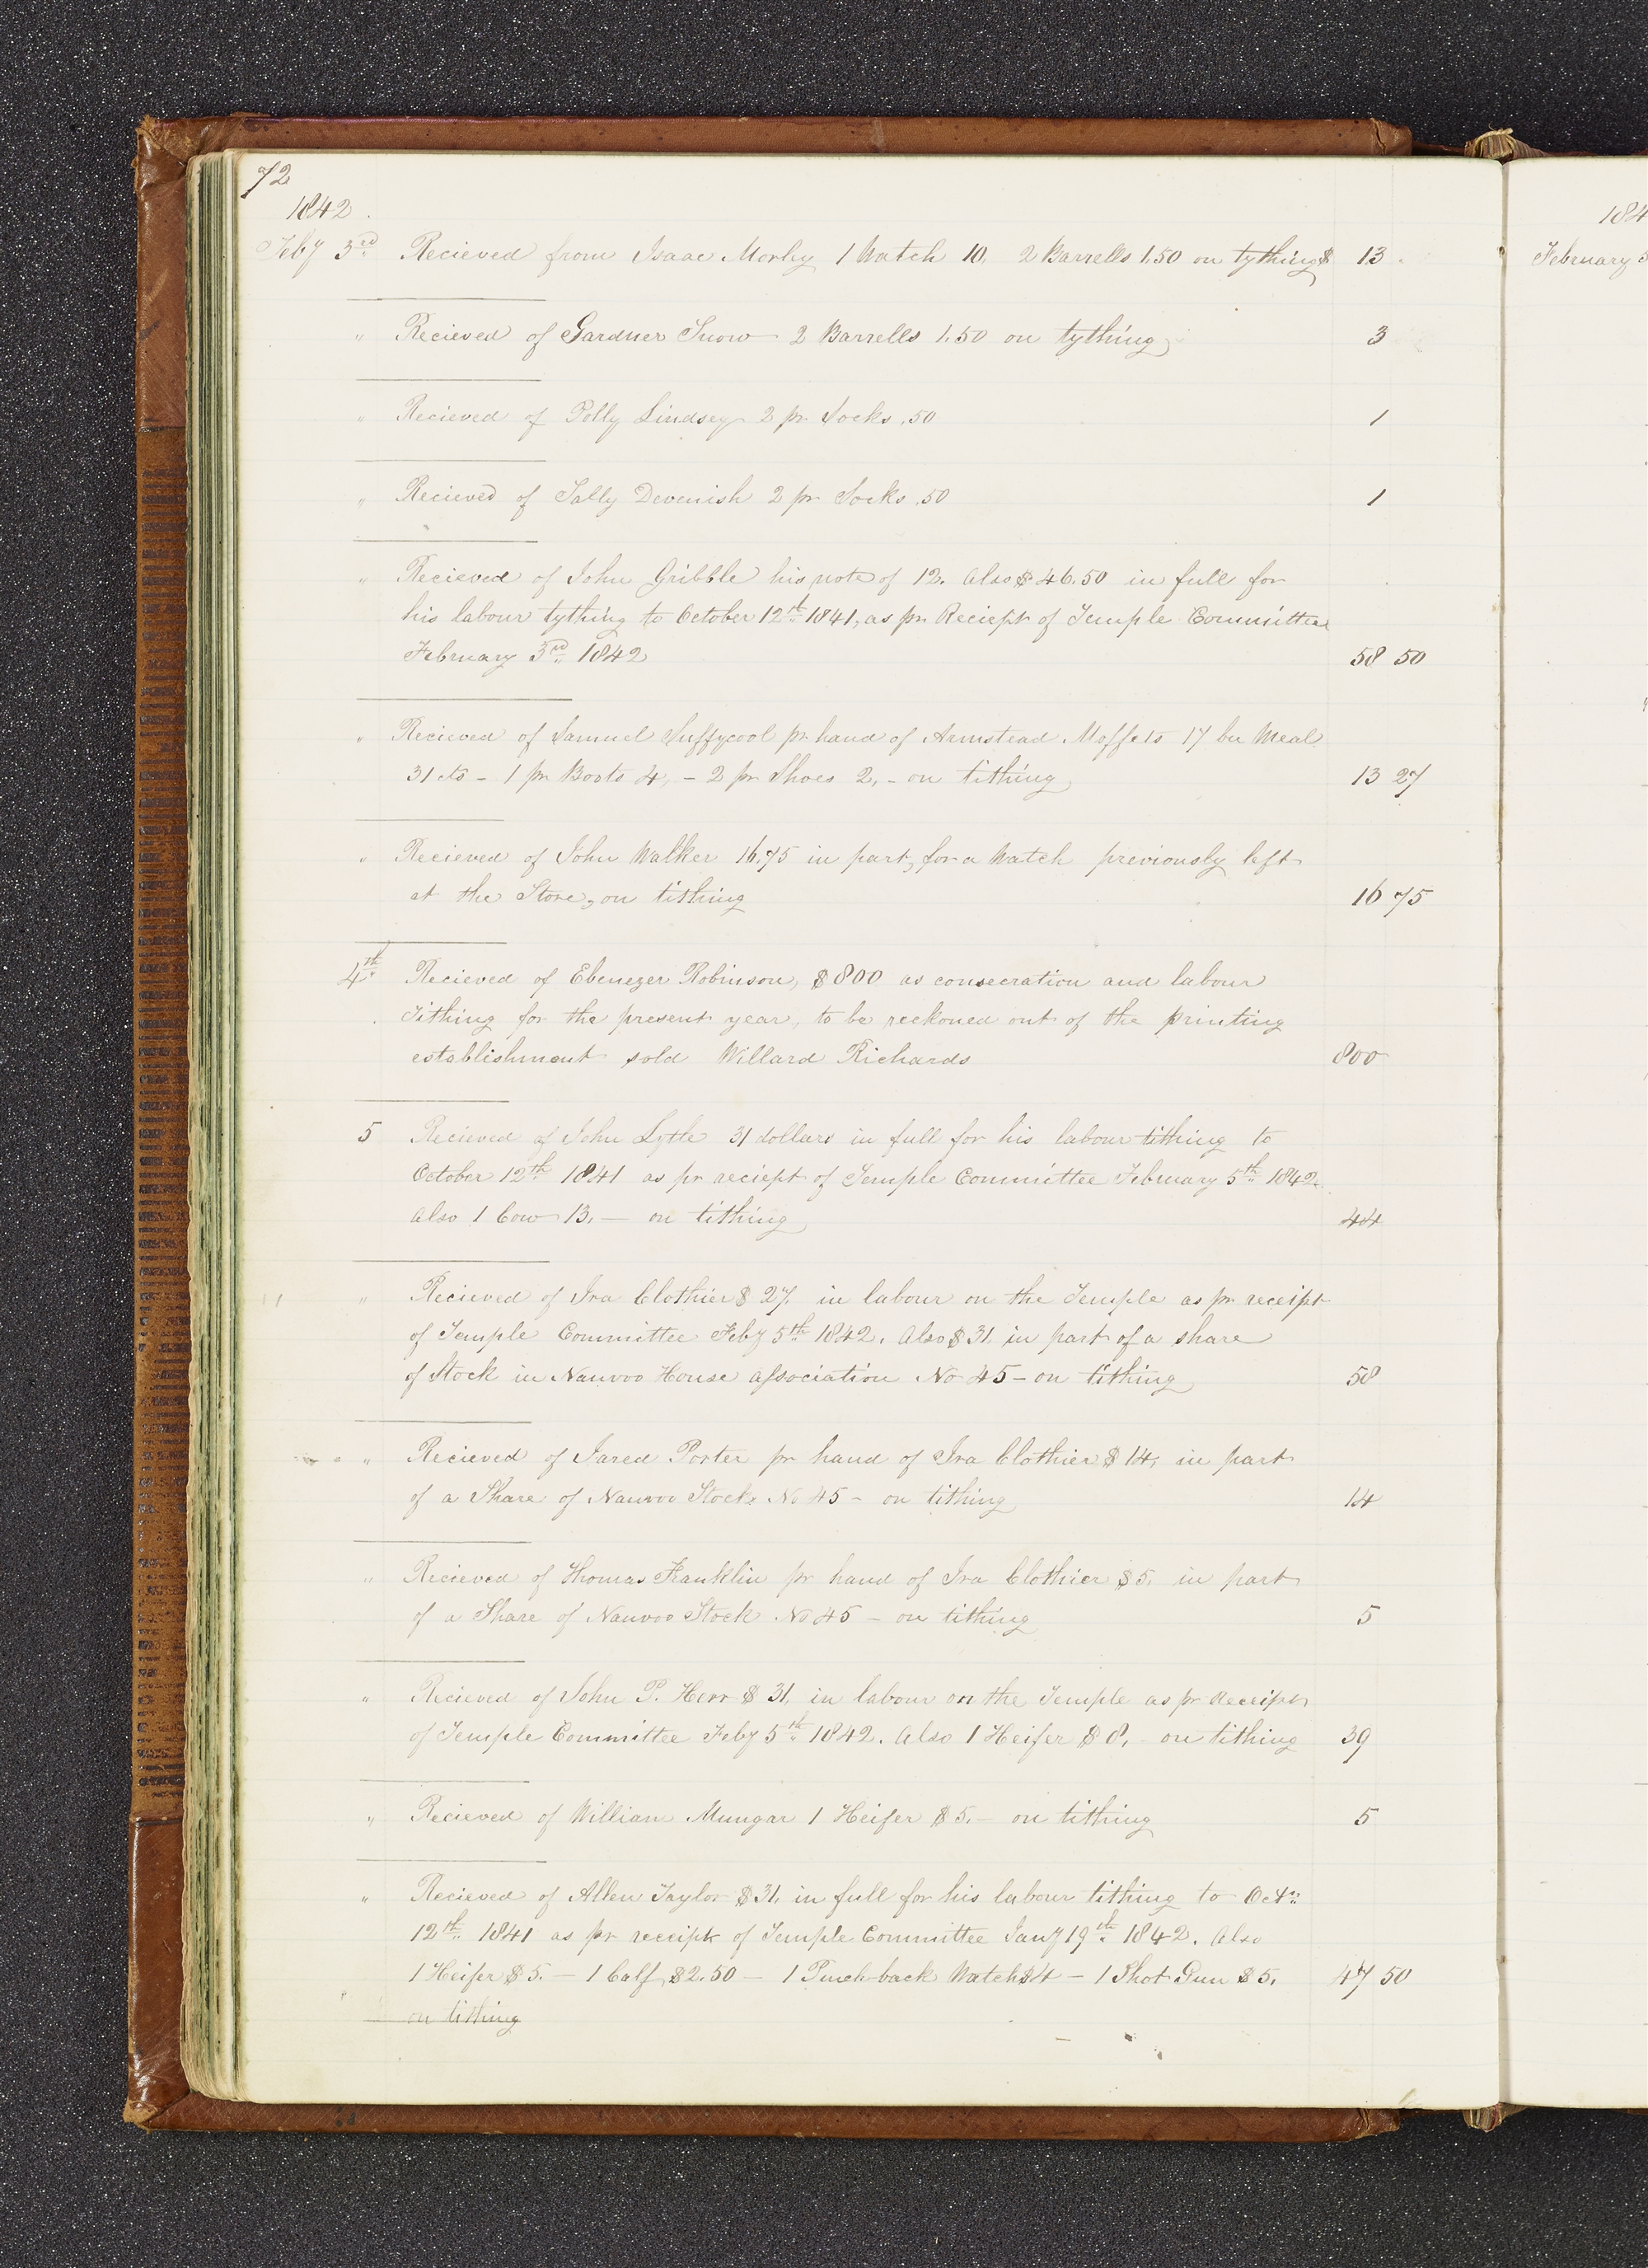 72
1842
Feby 3rd Recieved from Isaac Morley 1 Watch 10. 2 Barrells 1.50 on tything $ 13
" Recieved of Gardner Snow 2 Barrells 1.50 on tything 3
" Recieved of Polly Lindsey 2 pr Socks .50 1
" Recieved of Sally Devenish 2 pr Socks .50 1
" Recieved of John Gribble his note of 12. Also $46.50 in full for
his labour tything to October 12th 1841, as pr Reciept of Temple Committee
February 3rd 1842 58 50
" Recieved of Samuel Suffycool pr hand of Armstead Moffets 17 bu Meal
31 cts - 1 pr Boots 4, - 2 pr Shoes 2, - on tithing 13 27
" Recieved of John Walker 16.75 in part, for a Watch previously left
at the Store, on tithing 16 75
4th Recieved of Ebenezer Robinson, $800 as consecration and labour
Tithing for the present year, to be reckoned out of the printing
establishment sold Willard Richards 800
5 Recieved of John Lytle 31 dollars in full for his labour tithing to
October 12th 1841 as pr reciept of Temple Committee February 5th 1842
Also 1 Cow 13. — on tithing 44
" Recieved of Ira Clothier $27. in labour on the Temple as pr receipt
of Temple Committee Feby 5th 1842. Also $31. in part of a share
of Stock in Nauvoo House association No 45 - on tithing 58
" Recieved of Jared Porter pr hand of Ira Clothier $14, in part
of a Share of Nauvoo Stock No 45 - on tithing 14
" Recieved of Thomas Franklin pr hand of Ira Clothier $5. in part
of a Share of Nauvoo Stock No 45 - on tithing 5
" Recieved of John P. Herr $31, in labour on the Temple as pr Receipt
of Temple Committee Feby 5th 1842. Also 1 Heifer $8, - on tithing 39
" Recieved of William Mungar 1 Heifer $5. - on tithing 5
" Recieved of Allen Taylor $31, in full for his labour tithing to Octr
12th 1841 as pr receipt of Temple Committee Jany 19th 1842. Also
1 Heifer $5. - 1 Calf $2.50 - 1 Pinchback Watch $4 - 1 Shot Gun $5, 47 50
on tithing
184
February 5